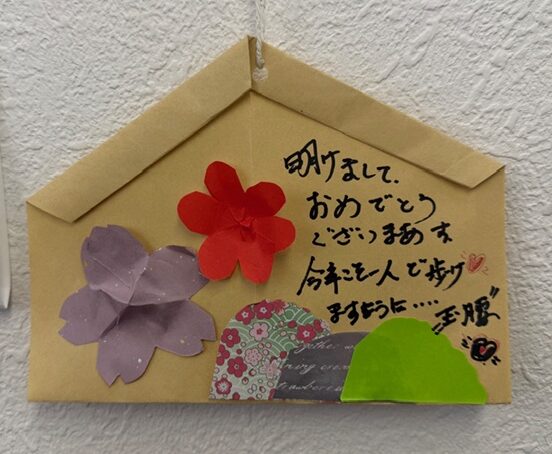 明けまして、
おめでとう
ございまあす
今年こそ一人で歩け
ますように‥‥
玉腰